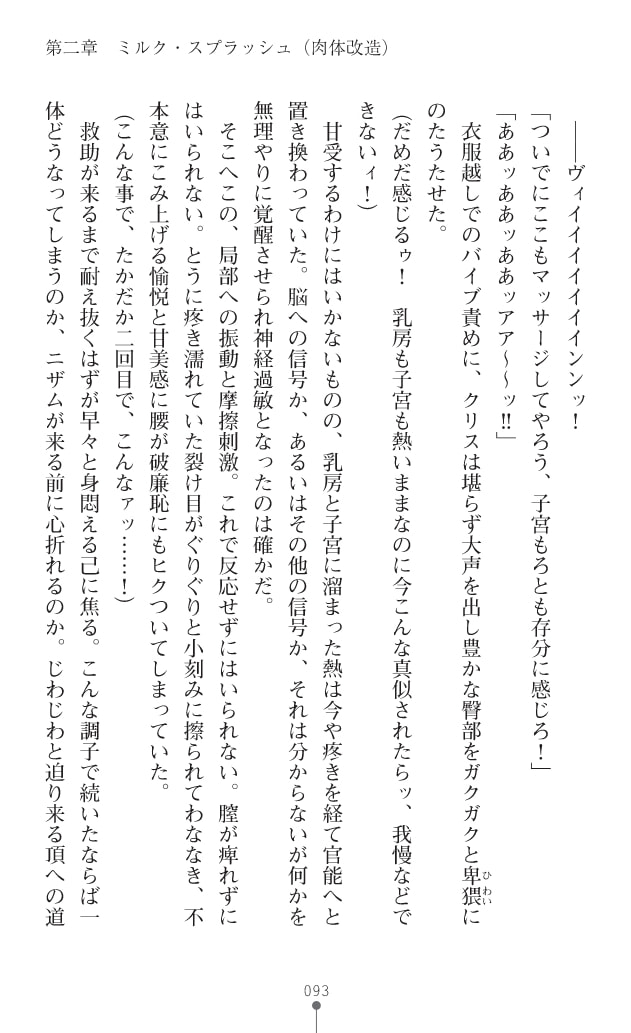 第二章　ミルク・スプラッシュ（肉体改造）
――ヴィイイイイイイインンッ！
「ついでにここもマッサージしてやろう、子宮もろとも存分に感じろ！」
「ああッああッああッアア～～ッ!!」
衣服越しでのバイブ責めに、クリスは堪らず大声を出し豊かな臀部をガクガクと卑猥に
のたうたせた。
（だめだ感じるゥ！　乳房も子宮も熱いままなのに今こんな真似されたらッ、我慢などで
きないィ！）
甘受するわけにはいかないものの、乳房と子宮に溜まった熱は今や疼きを経て官能へと
置き換わっていた。脳への信号か、あるいはその他の信号か、それは分からないが何かを
無理やりに覚醒させられ神経過敏となったのは確かだ。
そこへこの、局部への振動と摩擦刺激。これで反応せずにはいられない。膣が痺れずに
はいられない。とうに疼き濡れていた裂け目がぐりぐりと小刻みに擦られてわななき、不
本意にこみ上げる愉悦と甘美感に腰が破廉恥にもヒクついてしまっていた。
（こんな事で、たかだか二回目で、こんなァッ……！）
救助が来るまで耐え抜くはずが早々と身悶える己に焦る。こんな調子で続いたならば一
体どうなってしまうのか、ニザムが来る前に心折れるのか。じわじわと迫り来る頂への道
ひわい
093